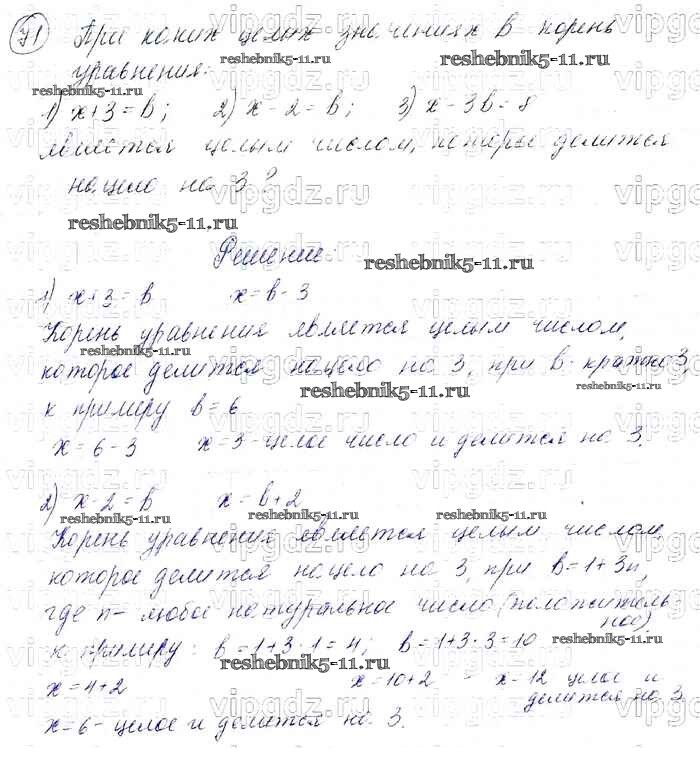 71 При каких целых значениях в корень
уравнения:
1) x+3=в; 2) x-2=в; 3) x-3в=8
является целым числом, которое делится
нацело на 3?
Решение:
1) x+3=в x=в-3
Корень уравнения является целым числом,
которое делится нацело на 3, при в-кратно 3,
к примеру в=6
x=6-3 x=3-целое число и делится на 3.
2) x-2=в x=в+2
Корень уравнения является целым числом,
которое делится нацело на 3, при в=1+3n,
где n- любое натуральное число (положитель-
ное).
к примеру: в=1+3·1=4; в=1+3·3=10
x=4+2 x=10+2 - x-12 целое и
делится на 3.
x=6-целое и делится на 3.
reshebnik5-11.ru
vipgdz.ru